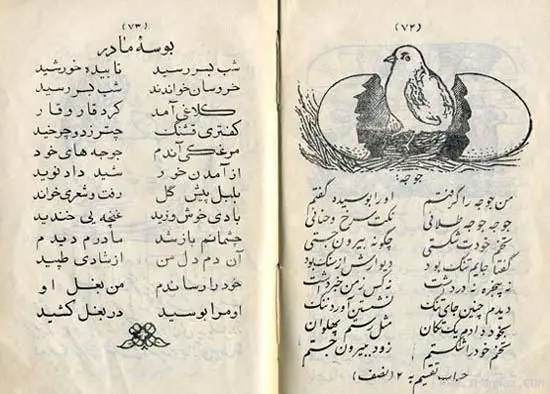 (۷۲)
جوجه:
من جوجه را گرفتم او را بوسیده گفتم
جوجه جوجه طلائی نکت سرخ و حنائی
تخم خودت شکستی چگونه بیرون جستی
گفتا جایم تنگ بود دیوارش از سنگ بود
نه پنجره نه در داشت نه کس ز من خبر داشت
دیدم چنین جای تنگ نشستن آورد ننگ
بخود دادم یک تکان مثل رستم پهلوان
تخم خود را شکستم زود بیرون جستم
حساب تقسیم به ۲ (نصف)
(۷۳)
بوسهٔ مادر
شب بسر رسید تابیده خورشید
خروسان خواندند شب بسر رسید
کلاغی آمد کرد قار و قار
کفتری قشنگ چتر زد و چرخید
مرغکی آندم جوجه های خود
از آمدن خور شید داد نوید
بلبل پیش گل رفت و شعری خواند
بادی خوش وزید غنچه یی خندید
چشمانم باز شد مادرم دیدم
آن دم دل من از شادی طپید
خود را رساندم من ببغل او
او مرا بوسید در بغل کشید